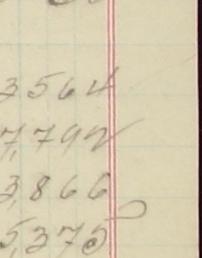 3564
7,792
3,866
5,375